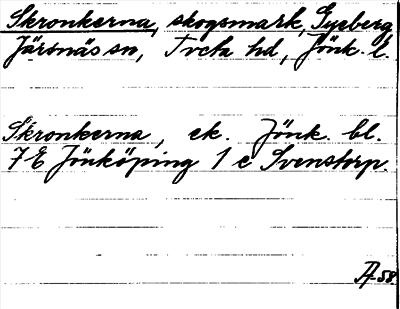 Skronkerna, skogsmark, Gyeberg,
Järsnäs sn, Tveta hd, Jönk. l.
Skronkerna, ek. Jönk. bl.
7E Jönköping 1 e Svenstorp.
58